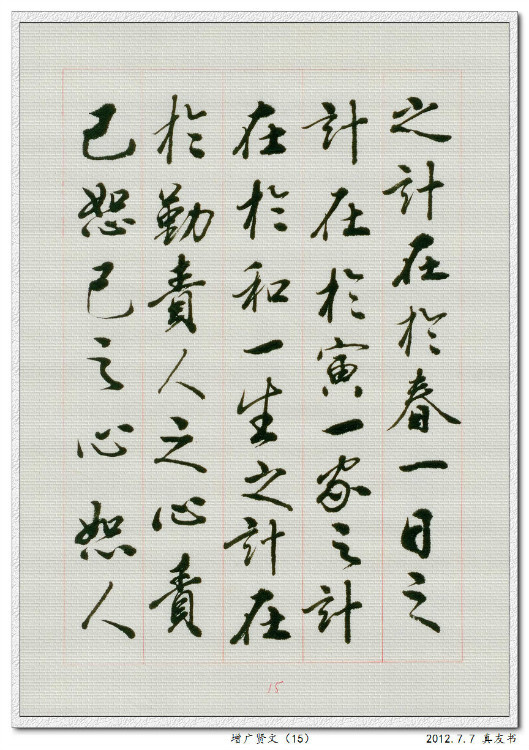 之計在於春一日之
計在於寅一家之計
在於和一生之計在
於勤責人之心責
己恕己之心恕人
15
增广贤文（15）
2012.7.7 真友书